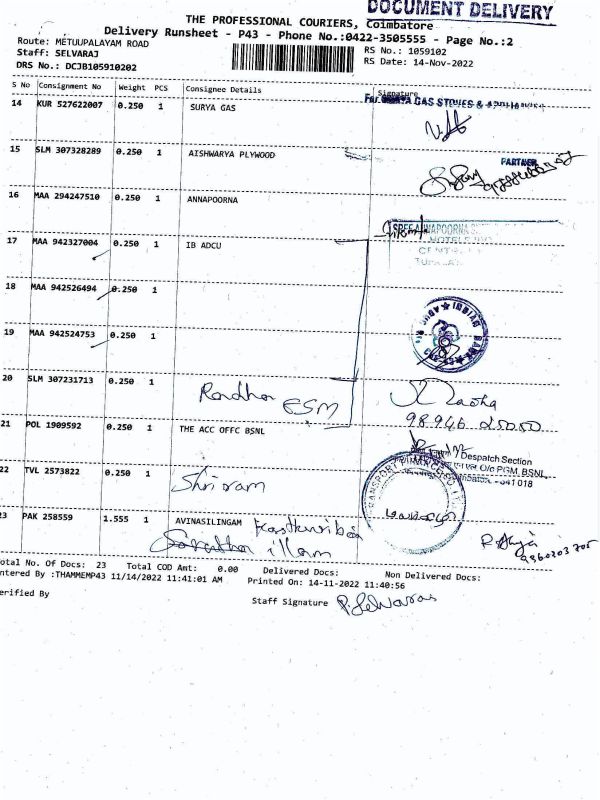 DOCUMENT DELIVERY
THE PROFESSIONAL COURIERS, Coimbatore
Delivery Runsheet - P43 - Phone No.:0422-3505555 - Page No.:2
Route: METUUPALAYAM ROAD
RS No.: 1059102
Staff: SELVARAJ
RS Date: 14-Nov-2022
DRS No.: DCJB105910202
S No Consignment No Weight PCS Consignee Details Signature
14 KUR 527622007 0.250 1 SURYA GAS
GAS STOVES &
15 SLM 307328289 0.250 1 AISHWARYA PLYWOOD
PARTNER
16 MAA 294247510 0.250 1 ANNAPOORNA
SREE ANNAPOORNA
HOTELS
17 MAA 942327004 0.250 1 IB ADCU
18 MAA 942526494 0.250 1
INDIAN BANK
19 MAA 942524753 0.250 1
20 SLM 307231713 0.250 1
Radha ESM
98946 25050
21 POL 1909592 0.250 1 THE ACC OFFC BSNL
Despatch Section
O/o PGM, BSNL,
641 018
22 TVL 2573822 0.250 1
Shriram
TRANSPORT FINANCE
23 PAK 258559 1.555 1 AVINASILINGAM Kasthuriba
Saratha illam
Total No. Of Docs: 23 Total COD Amt: 0.00 Delivered Docs: Non Delivered Docs:
Entered By :THAMMEMP43 11/14/2022 11:41:01 AM Printed On: 14-11-2022 11:40:56
Verified By
Staff Signature P. Selvaraj